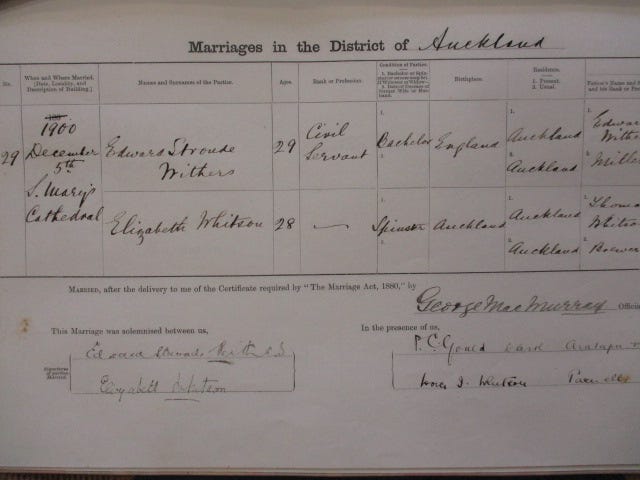 Marriages in the District of Auckland
No.
When and Where Married.
(Date, Locality, and
Description of Building.)
Names and Surnames of the Parties.
Ages.
Rank or Profession.
Condition of Parties.
1. Bachelor or Spin-
Birthplace.
Residence.
1. Present.
2. Usual.
Father's Name and
and his Rank or
29
1900
December
5th
S. Mary's
Cathedral
Edward Stroude
Withers
29
Civil
Servant
1.
Bachelor
2.
England
1.
Auckland
2.
Auckland
1.
Edwar
Withe
2.
Mille
Elizabeth Whitson
28
1.
Spinster
2.
Auckland
1.
Auckland
2.
Auckland
1.
Thoma
Whitso
2.
Brewer
Married, after the delivery to me of the Certificate required by "The Marriage Act, 1880," by
George MacMurray Offici
This Marriage was solemnised between us,
Signatures
of parties
Married.
Edward Stroude Withers
Elizabeth Whitson
In the presence of us,
P. C. Gould
Whitson Parnell